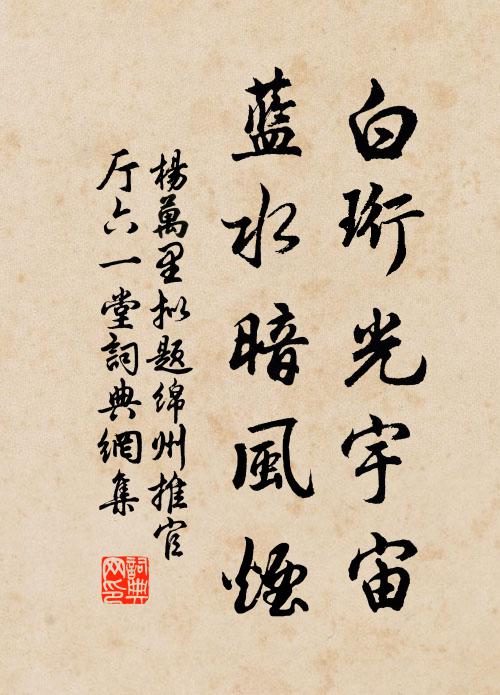 白珩光宇宙
藍水暗風煙
楊萬里拟题绵州推官
厅六一堂詞典網集
詞典
网印